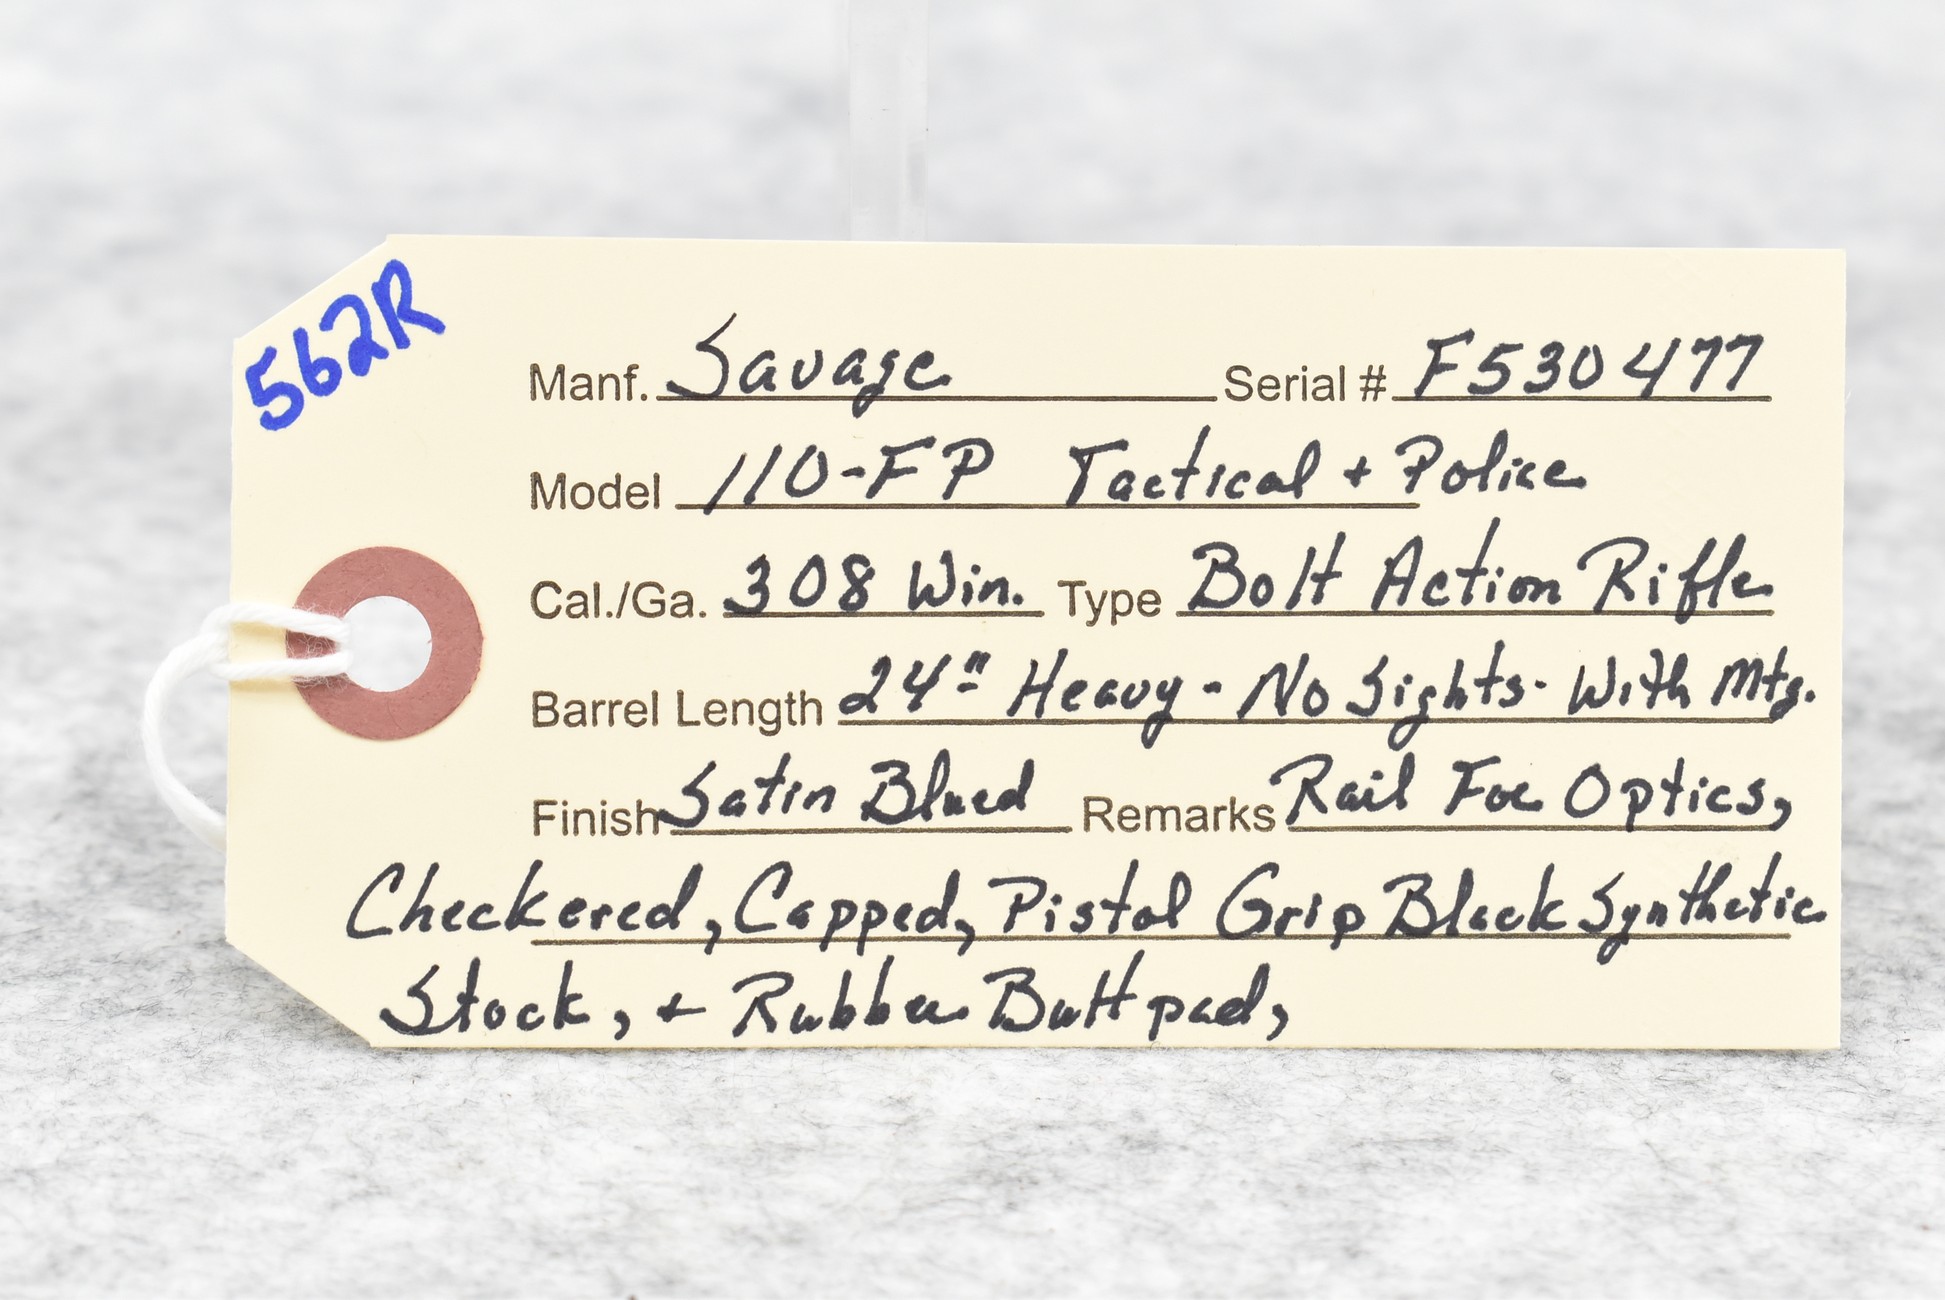 562R
Manf. Savage Serial # F530477
Model 110-FP Tactical + Police
Cal./Ga. 308 Win. Type Bolt Action Rifle
Barrel Length 24" Heavy - No Sights - With Mtg.
Finish Satin Blued Remarks Rail For Optics,
Checkered, Capped, Pistol Grip Black Synthetic
Stock, + Rubber Butt pad,